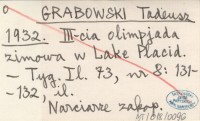 o GRABOWSKI Tadeusz
1932. III-cia olimpjada
zimowa w Lake Placid.
- Tyg. Il. 73, nr 8: 131-
-132, il.
Narciarze zakop.